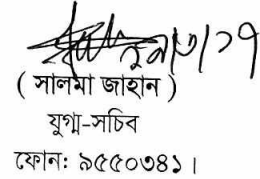 ( সালমা জাহান )
যুগ্ম-সচিব
ফোন: ৯৫৫০৩৪১।